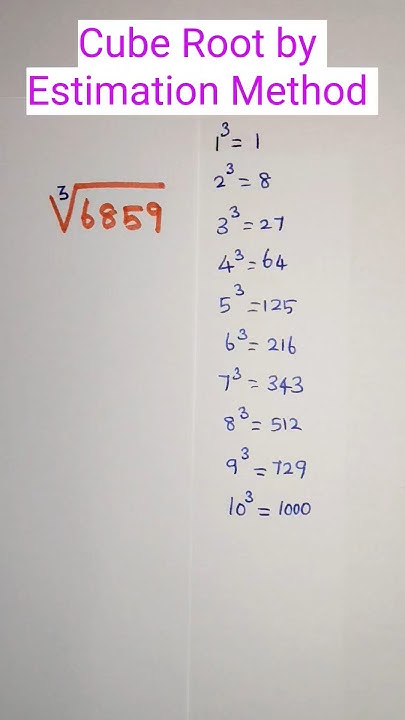 Cube Root by
Estimation Method
∛6859
1³ = 1
2³ = 8
3³ = 27
4³ = 64
5³ = 125
6³ = 216
7³ = 343
8³ = 512
9³ = 729
10³ = 1000